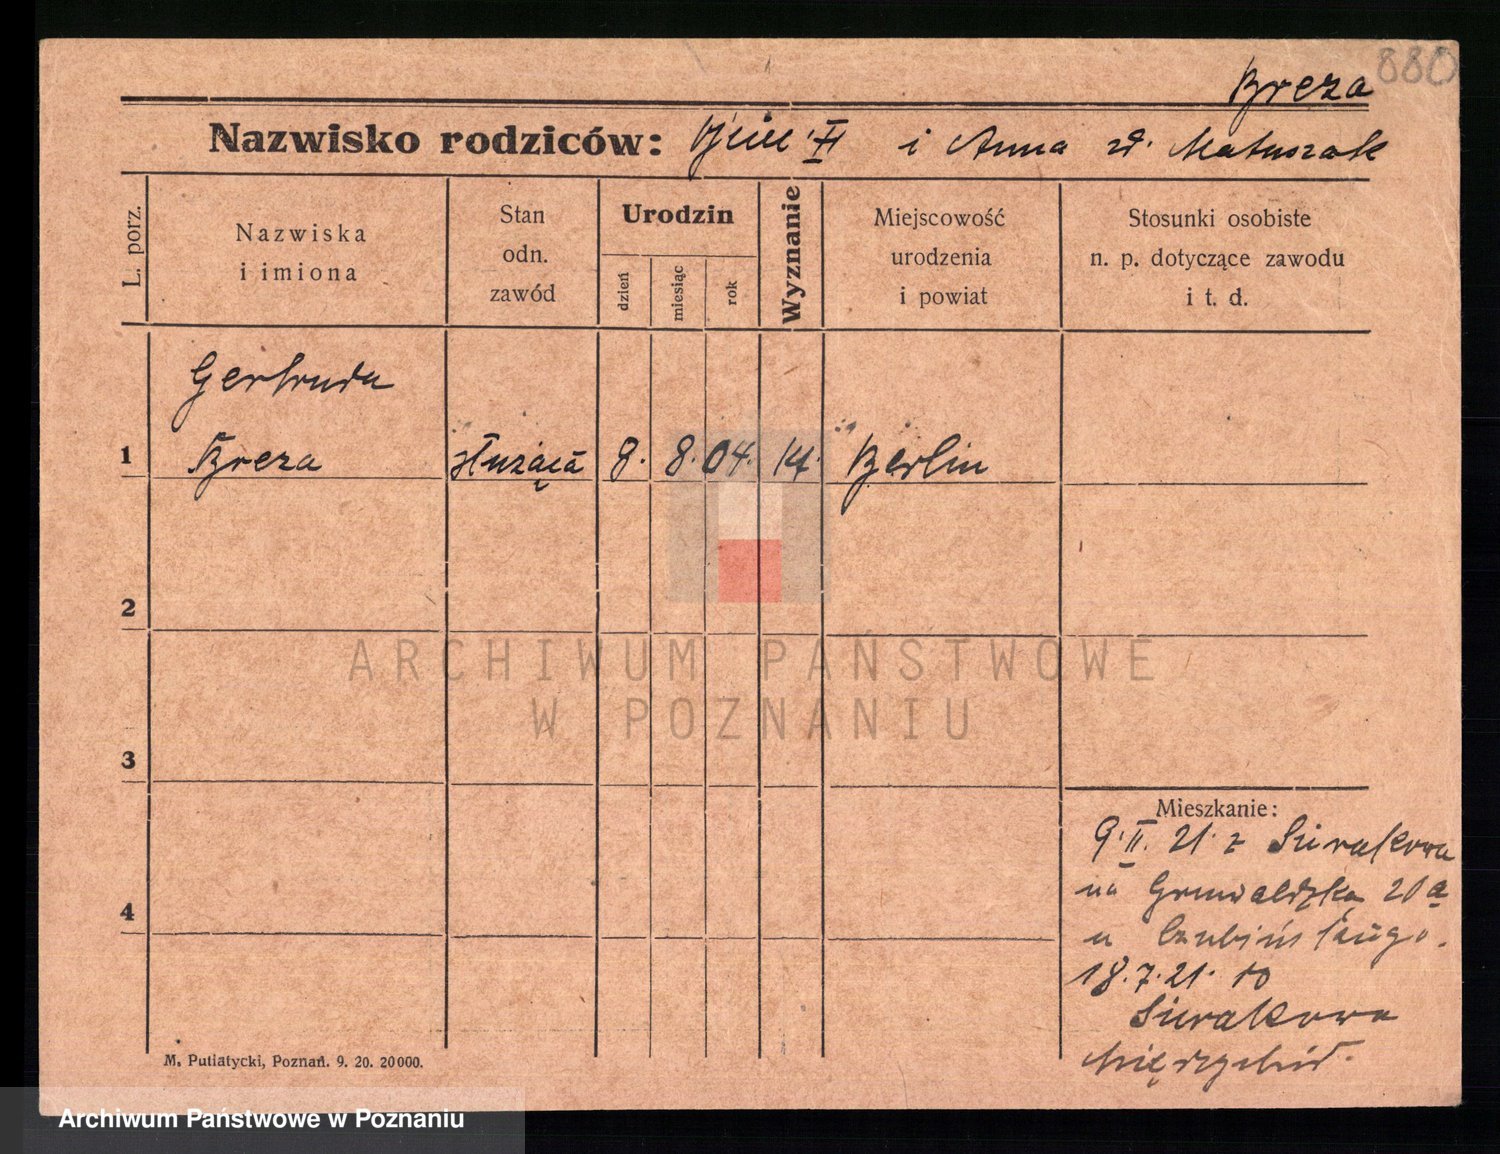 880
Breza
Nazwisko rodziców: i Anna zd. Matuszak
L. porz.
Nazwiska
i imiona
Stan
odn.
zawód
Urodzin
dzień
miesiąc
rok
Wyznanie
Miejscowość
urodzenia
i powiat
Stosunki osobiste
n. p. dotyczące zawodu
i t. d.
Gertruda
1 Breza służąca 8. 8. 04. kt. Berlin
2
ARCHIWUM PAŃSTWOWE
W POZNANIU
3
Mieszkanie:
9. II. 21. z Sierakowa
na Grunwaldzka 20a
u
4
18.7.21. do
Sierakowa
M. Putiatycki, Poznań. 9. 20. 20000.
Archiwum Państwowe w Poznaniu